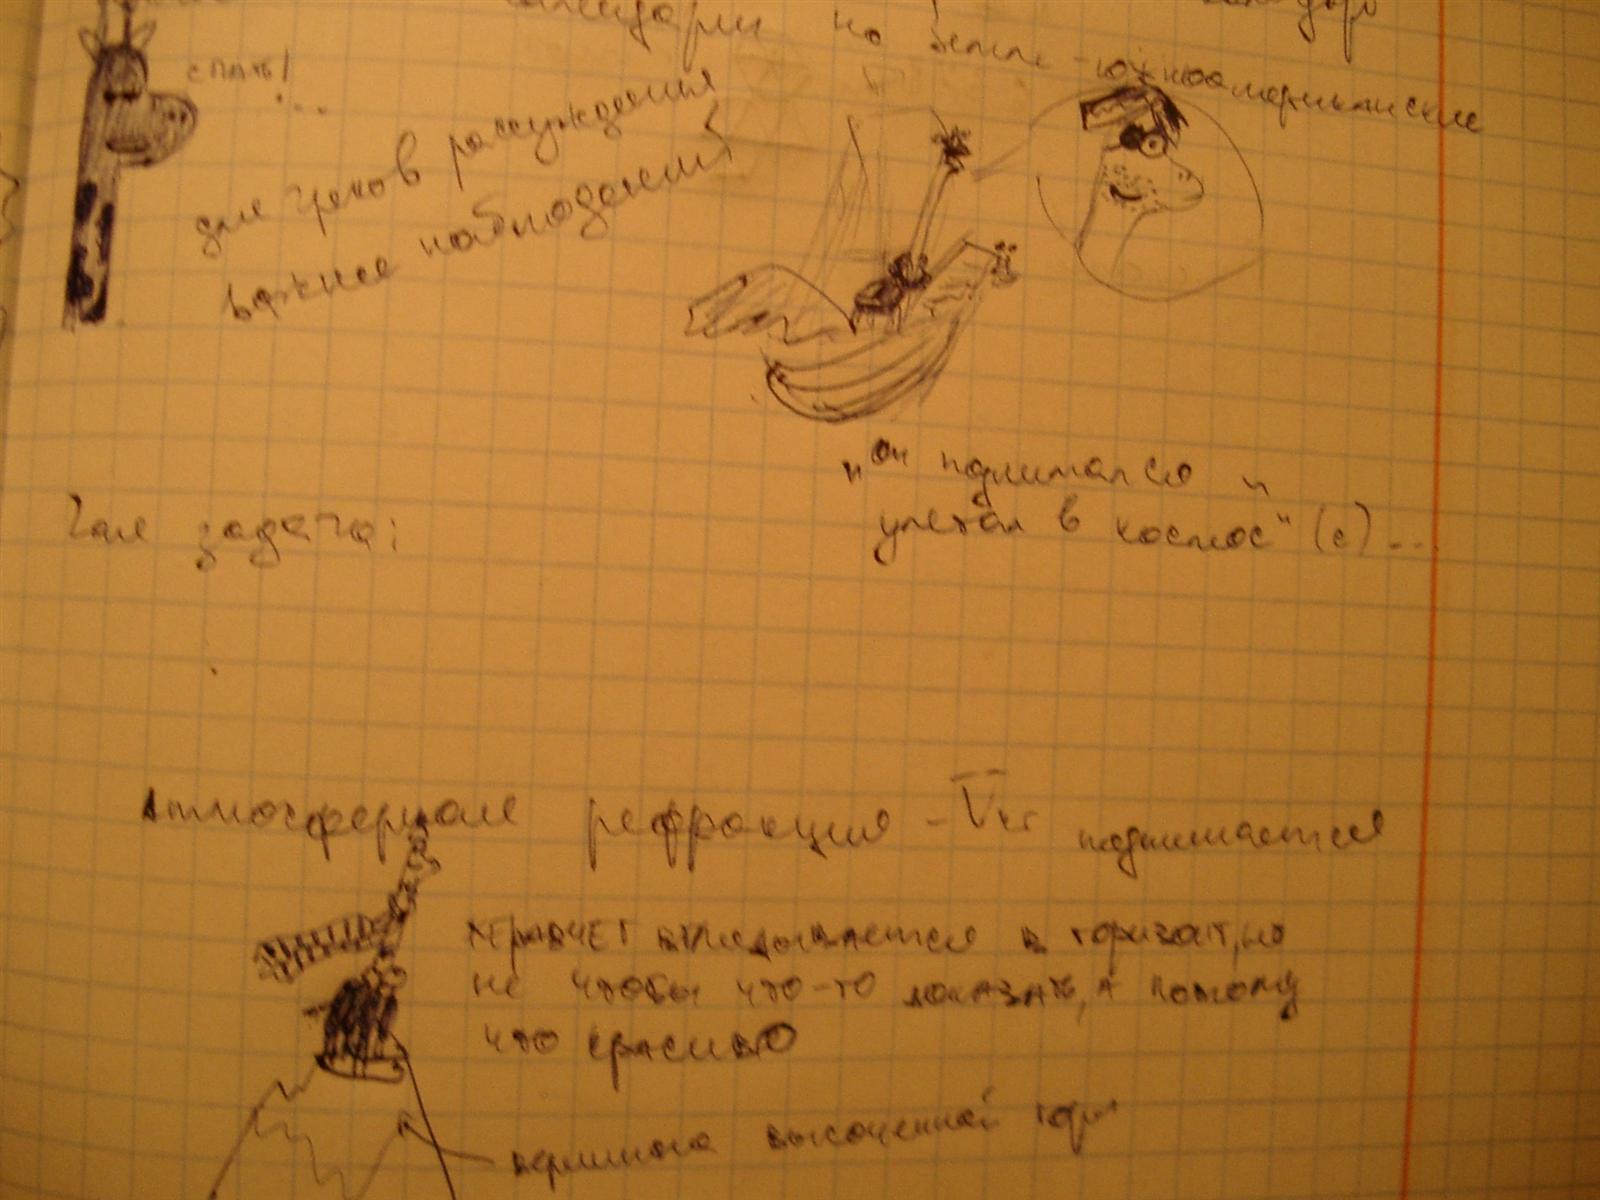 календари на Земле - южноамериканские
спать!
...
для греков рассуждения
важнее наблюдений
"он поднимался и
улетал в космос" (с)...
задача:
Атмосферная рефракция - поднимается
вглядывается в горизонт, но
не чтобы что-то доказать, а потому
что красиво
вершина высоченной горы